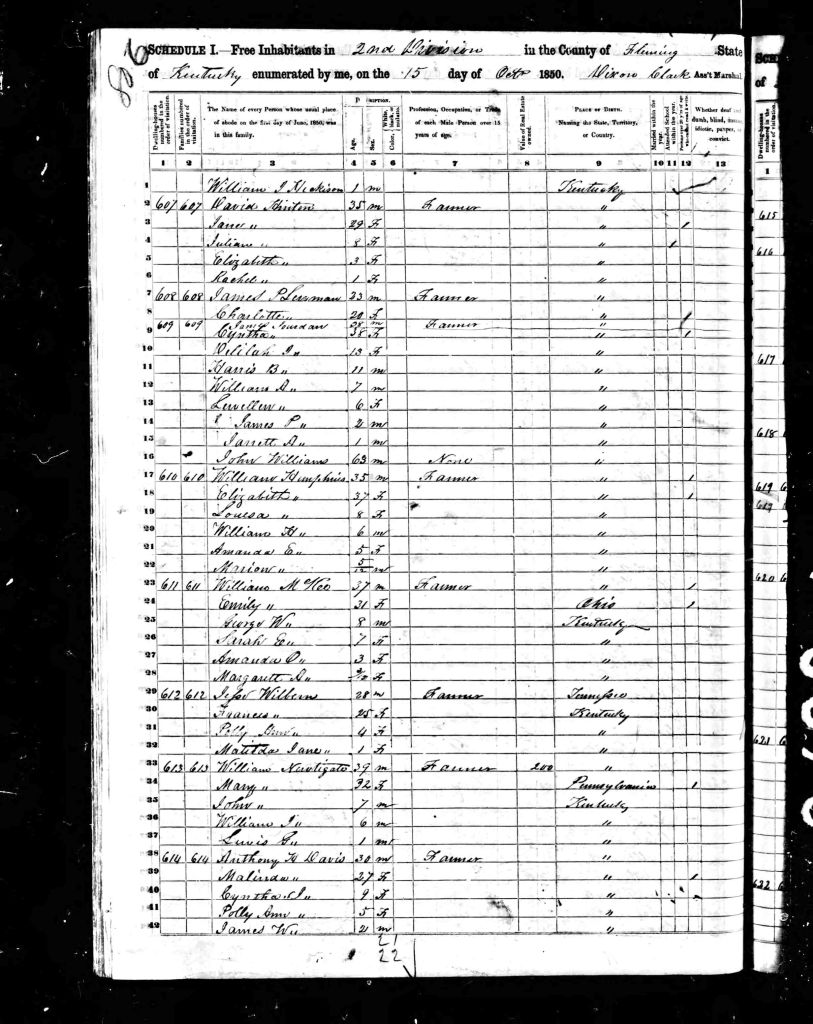 SCHEDULE I.—Free Inhabitants in 2nd Division in the County of Fleming State
of Kentucky enumerated by me, on the 15 day of Octr 1850. Dixon Clark Ass't Marshal
Dwelling-houses numbered in the order of visitation.
Families numbered in the order of visitation.
The Name of every Person whose usual place of abode on the first day of June, 1850, was in this family.
Age.
Sex.
Profession, Occupation, or Trade of each Male Person over 15 years of age.
Value of Real Estate owned.
PLACE OF BIRTH. Naming the State, Territory, or Country.
Married within the year.
Attended School within the year.
Whether deaf and dumb, blind, insane, idiotic, pauper, or convict.
1 2 3 4 5 6 7 8 9 10 11 12 13
1 William J 1 m Kentucky
2 607 607 David Hinton 35 m Farmer "
3 Jane " 29 F " 1
4 Juliane " 8 F " 1
5 Elizabeth " 3 F "
6 Rachel " 1 F "
7 608 608 James P 23 m Farmer "
8 Charlotte " 20 F " 1
609 609 James Jourdan 38 m Farmer "
9 Cyntha " 38 F " 1
10 Delilah J " 13 F "
11 Harris B " 11 m "
12 William A " 7 m "
13 Lewellen " 6 F "
14 James P " 2 m "
15 Jarrett A " 1 m "
16 John Williams 63 m None "
17 610 610 William Humphries 35 m Farmer " 1
18 Elizabeth " 37 F " 1
19 Louisa " 8 F "
20 William H " 6 m "
21 Amanda E " 5 F "
22 Marion " 5/12 m "
23 611 611 William McKee 37 m Farmer " 1
24 Emily " 31 F Ohio 1
25 George W " 8 m Kentucky
26 Sarah E " 7 F "
27 Amanda O " 3 F "
28 Margarett A " F "
29 612 612 Jesse Wilbern 28 m Farmer Tennessee
30 Frances " 25 F Kentucky
31 Polly Ann " 4 F "
32 Matilda Jane " 1 F "
33 613 613 William Newtigate 39 m Farmer 200 "
34 Mary " 32 F Pennsylvania 1
35 John " 7 m Kentucky
36 William J " 6 m "
37 Lewis G " 1 m "
38 614 614 Anthony H Davis 30 m Farmer "
39 Malinda " 27 F " 1
40 Cyntha J " 9 F "
41 Polly Ann " 5 F "
42 James W " 2 m "
21
22
1
615
616
617
618
619
620
621
622